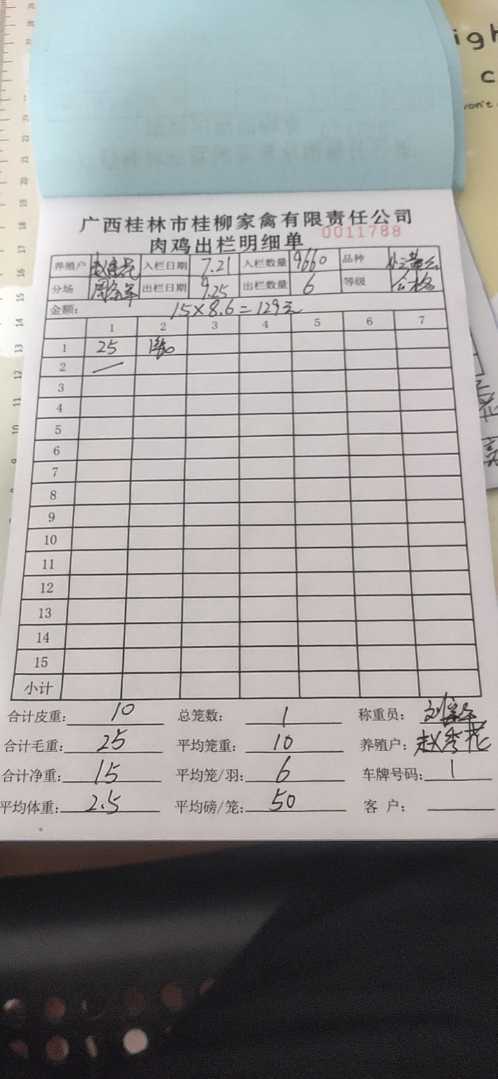 igh
c
on't
广西桂林市桂柳家禽有限责任公司
肉鸡出栏明细单 0011788
养殖户 赵秀花 入栏日期 7.21 入栏数量 9660 品种
分场 出栏日期 9.25 出栏数量 6 等级 合格
金额: 15×8.6=129元
1 2 3 4 5 6 7
1 25
2 —
3
4
5
6
7
8
9
10
11
12
13
14
15
小计
合计皮重: 10 总笼数: 1 称重员:
合计毛重: 25 平均笼重: 10 养殖户: 赵秀花
合计净重: 15 平均笼/羽: 6 车牌号码: 1
平均体重: 2.5 平均磅/笼: 50 客户: